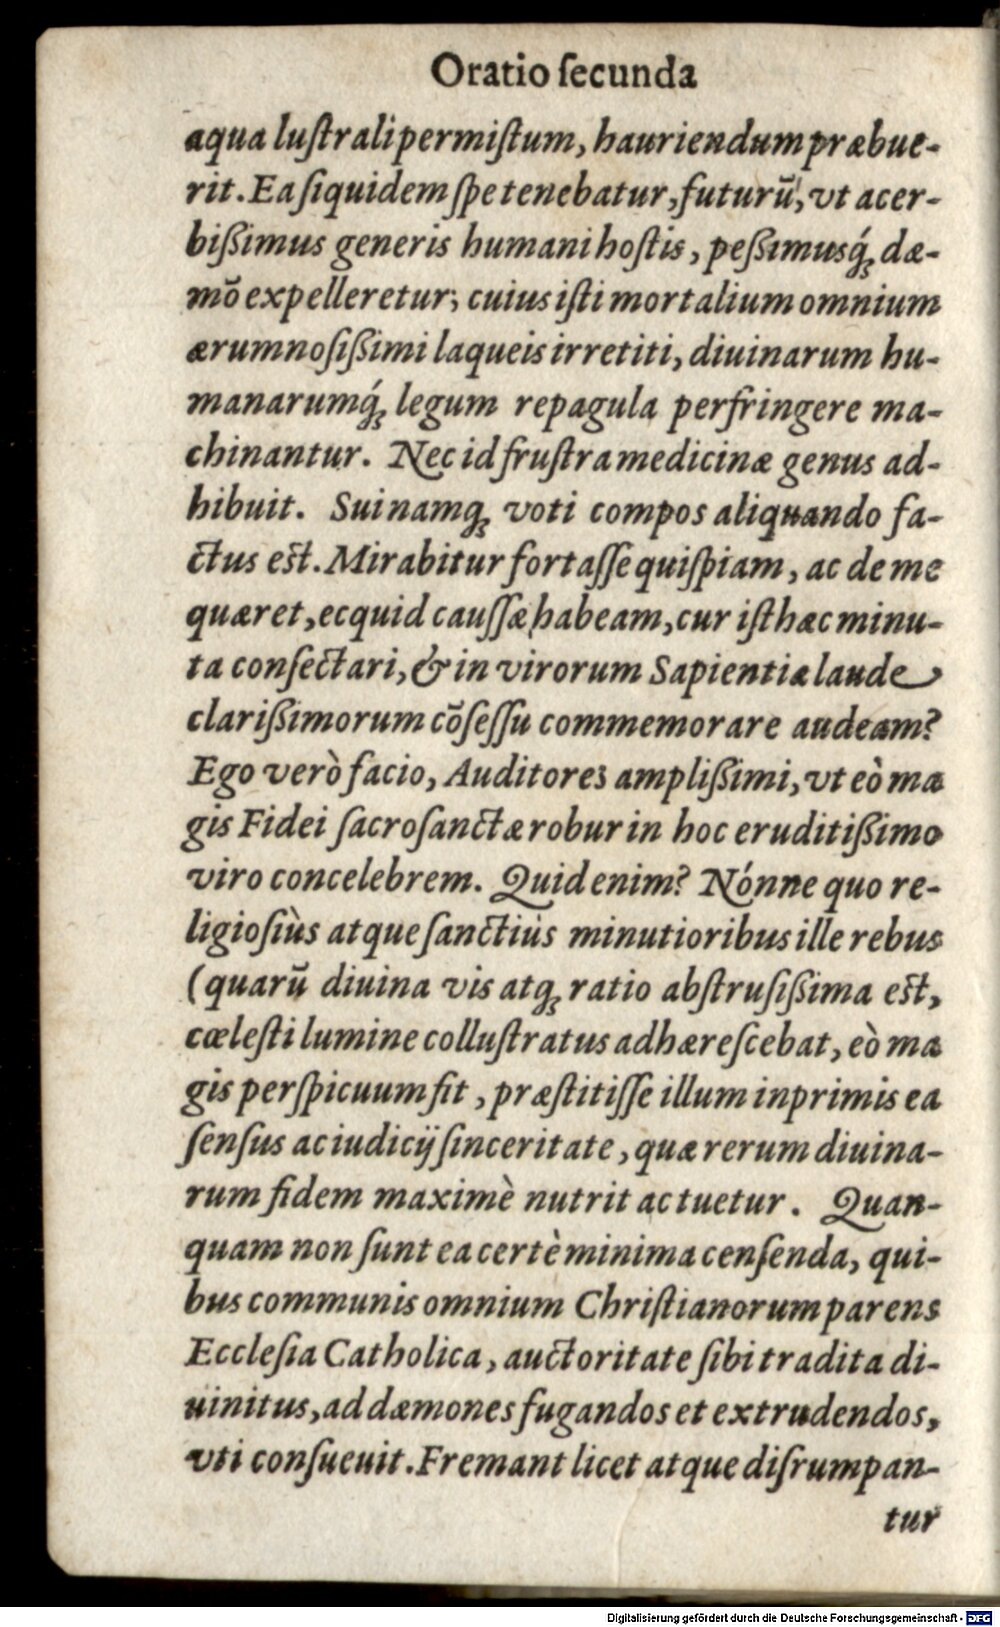 Oratio ſecunda
aqua luſtrali permiſtum, hauriendum præbue-
rit. Ea ſiquidem ſpe tenebatur, futurū, vt acer-
bißimus generis humani hoſtis, peßimusq́ꝫ dæ-
mō expelleretur; cuius iſti mortalium omnium
ærumnoſißimi laqueis irretiti, diuinarum hu-
manarumq́ꝫ legum repagula perfringere ma-
chinantur. Nec id fruſtra medicinæ genus ad-
hibuit. Sui namqꝫ voti compos aliquando fa-
ctus est. Mirabitur fortaſſe quiſpiam, ac de me
quæret, ecquid cauſſæ habeam, cur iſthæc minu-
ta conſectari, & in virorum Sapientiæ laude
clarißimorum cōſeſſu commemorare audeam?
Ego verò facio, Auditores amplißimi, vt eò ma
gis Fidei ſacroſanctæ robur in hoc eruditißimo
viro concelebrem. Quid enim? Nónne quo re-
ligioſiùs atque ſanctiùs minutioribus ille rebus
(quarū diuina vis atqꝫ ratio abſtruſißima est,
cæleſti lumine colluſtratus adhæreſcebat, eò ma
gis perſpicuum fit, præſtitiſſe illum inprimis ea
ſenſus ac iudicij ſinceritate, quæ rerum diuina-
rum fidem maximè nutrit ac tuetur. Quan-
quam non ſunt ea certè minima cenſenda, qui-
bus communis omnium Chriſtianorum parens
Eccleſia Catholica, auctoritate ſibi tradita di-
uinitus, ad dæmones fugandos et extrudendos,
vti conſueuit. Fremant licet atque diſrumpan-
tur
Digitalisierung gefördert durch die Deutsche Forschungsgemeinschaft - DFG